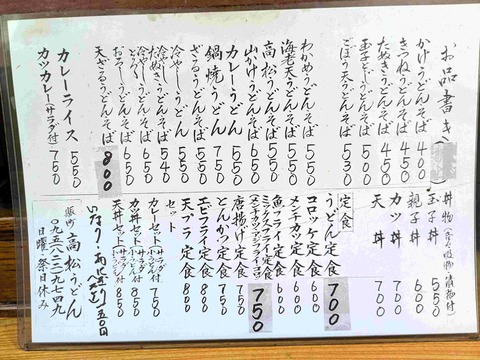 お品書き
かけうどんそば 400
きつねうどんそば 450
たぬきうどんそば 450
玉子とじうどんそば 500
ごぼう天うどんそば 530
わかめうどんそば 550
海老天うどんそば 650
高松うどんそば 550
山かけうどんそば 550
カレーうどん 550
鍋焼うどん 750
ざるうどんそば 550
冷やしうどん 540
冷やしたぬきうどんそば 650
おろしうどんそば 650
天ざるうどんそば 800
カレーライス 550
カツカレーサラダ付 750
丼物
玉子丼 550
親子丼 600
カツ丼 700
天丼 700
定食
うどん定食 700
コロッケ定食 600
メンチカツ定食 600
魚フライ定食 600
ミックスフライ定食 750
唐揚げ定食 750
とんかつ定食 750
エビフライ定食 800
天プラ定食 800
セット
カレーセット 750
カツ丼セット 850
天丼セット 850
いなり 50円
高松うどん
日曜祭日休み